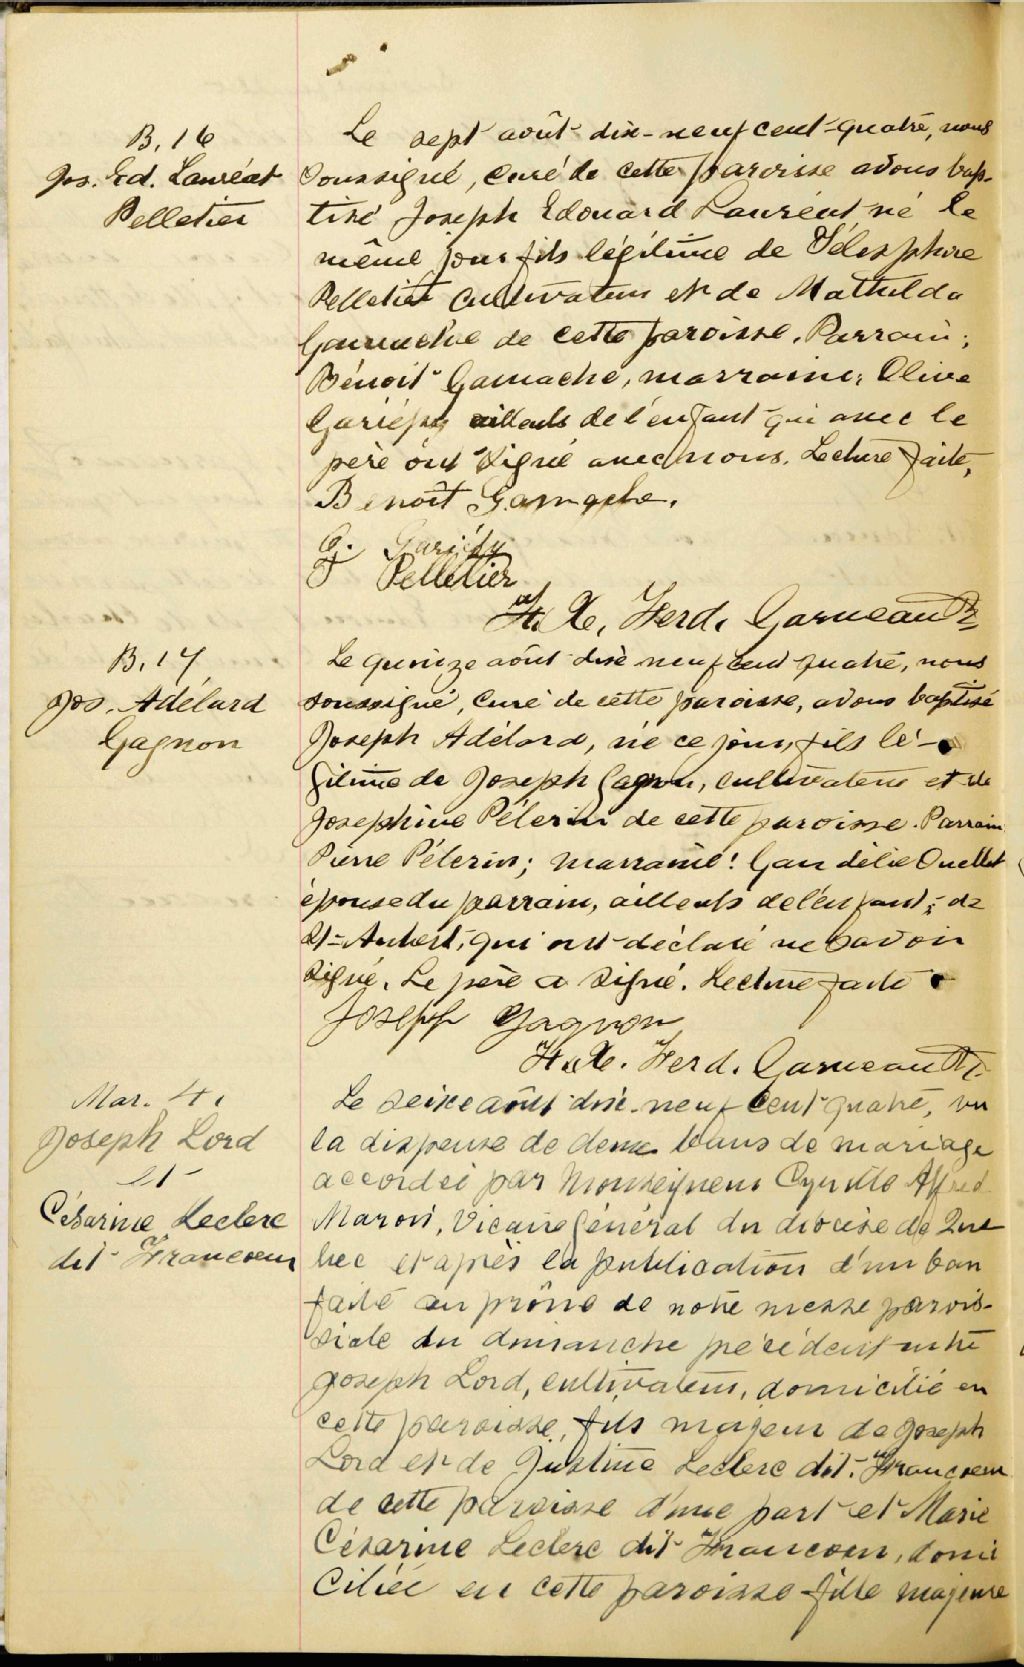 B. 16
Jos. Ed. Lauréat
Pelletier
Le sept août dix-neuf cent-quatre, nous
soussigné, curé de cette paroisse avons bap-
tisé Joseph Edouard Lauréat né le
même jour fils légitime de Télesphore
Pelletier cultivateur et de Mathilda
Gamache de cette paroisse. Parrain;
Bénoit Gamache, marraine; Olive
Gariépy aïlleuls de l'enfant qui avec le
père ont signé avec nous. Lecture faite,
Benoît Gamache.
Gariépy
Pelletier
F. X. Ferd. Garneau Ptr
B. 17
Jos. Adélard
Gagnon
Le quinze août dix neuf cent quatre, nous
soussigné, curé de cette paroisse, avons baptisé
Joseph Adélard, né ce jour, fils lé-
gitime de Joseph Gagnon, cultivateur et de
Joséphine Pélerin de cette paroisse. Parrain
Pierre Pélerin; marraine: Ouellet
épouse du parrain, aïlleuls de l'enfant; de
St-Aubert, qui ont déclaré ne savoir
signé. Le père a signé. Lecture faite
Joseph Gagnon
F. X. Ferd. Garneau Ptr.
Mar. 4.
Joseph Lord
et
Césarine Leclerc
dit Francoeur
Le seize août dix-neuf cent quatre, vu
la dispense de deux bans de mariage
accordée par Monseigneur Cyrille Alfred
Marois, Vicaire Général du diocèse de Qué
bec et après la publication d'un ban
faite au prône de notre messe parois-
siale du dimanche précédent entre
Joseph Lord, cultivateur, domicilié en
cette paroisse, fils majeur de Joseph
Lord et de Justine Leclerc dit Francoeur
de cette paroisse d'une part et Marie
Césarine Leclerc dit Francoeur, domi
ciliée en cette paroisse fille majeure